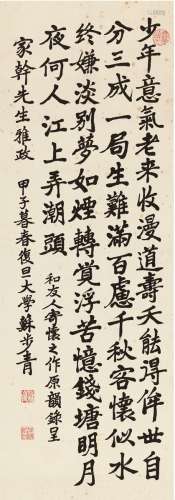 少年意氣老來收漫道壽夭能得侔世自
分三成一局生難滿百慮千秋客懷似水
終嫌淡別夢如煙轉覺浮苦憶錢塘明月
夜何人江上弄潮頭
和友人寄懷之作原韻錄呈
家幹先生雅政
甲子暮春復旦大學蘇步青